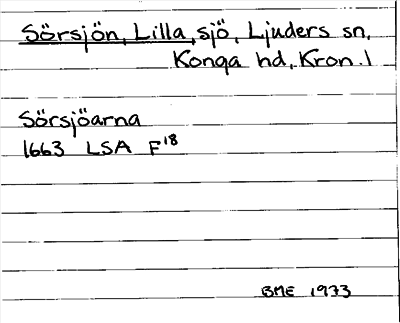 Sörsjön, Lilla, sjö, Ljuders sn,
Konga hd, Kron. l
Sörsjöarna
1663 LSA F18
BME 1973